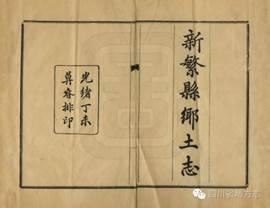 新繁縣鄉土志
光緒丁未
異香排印
四川省地方志